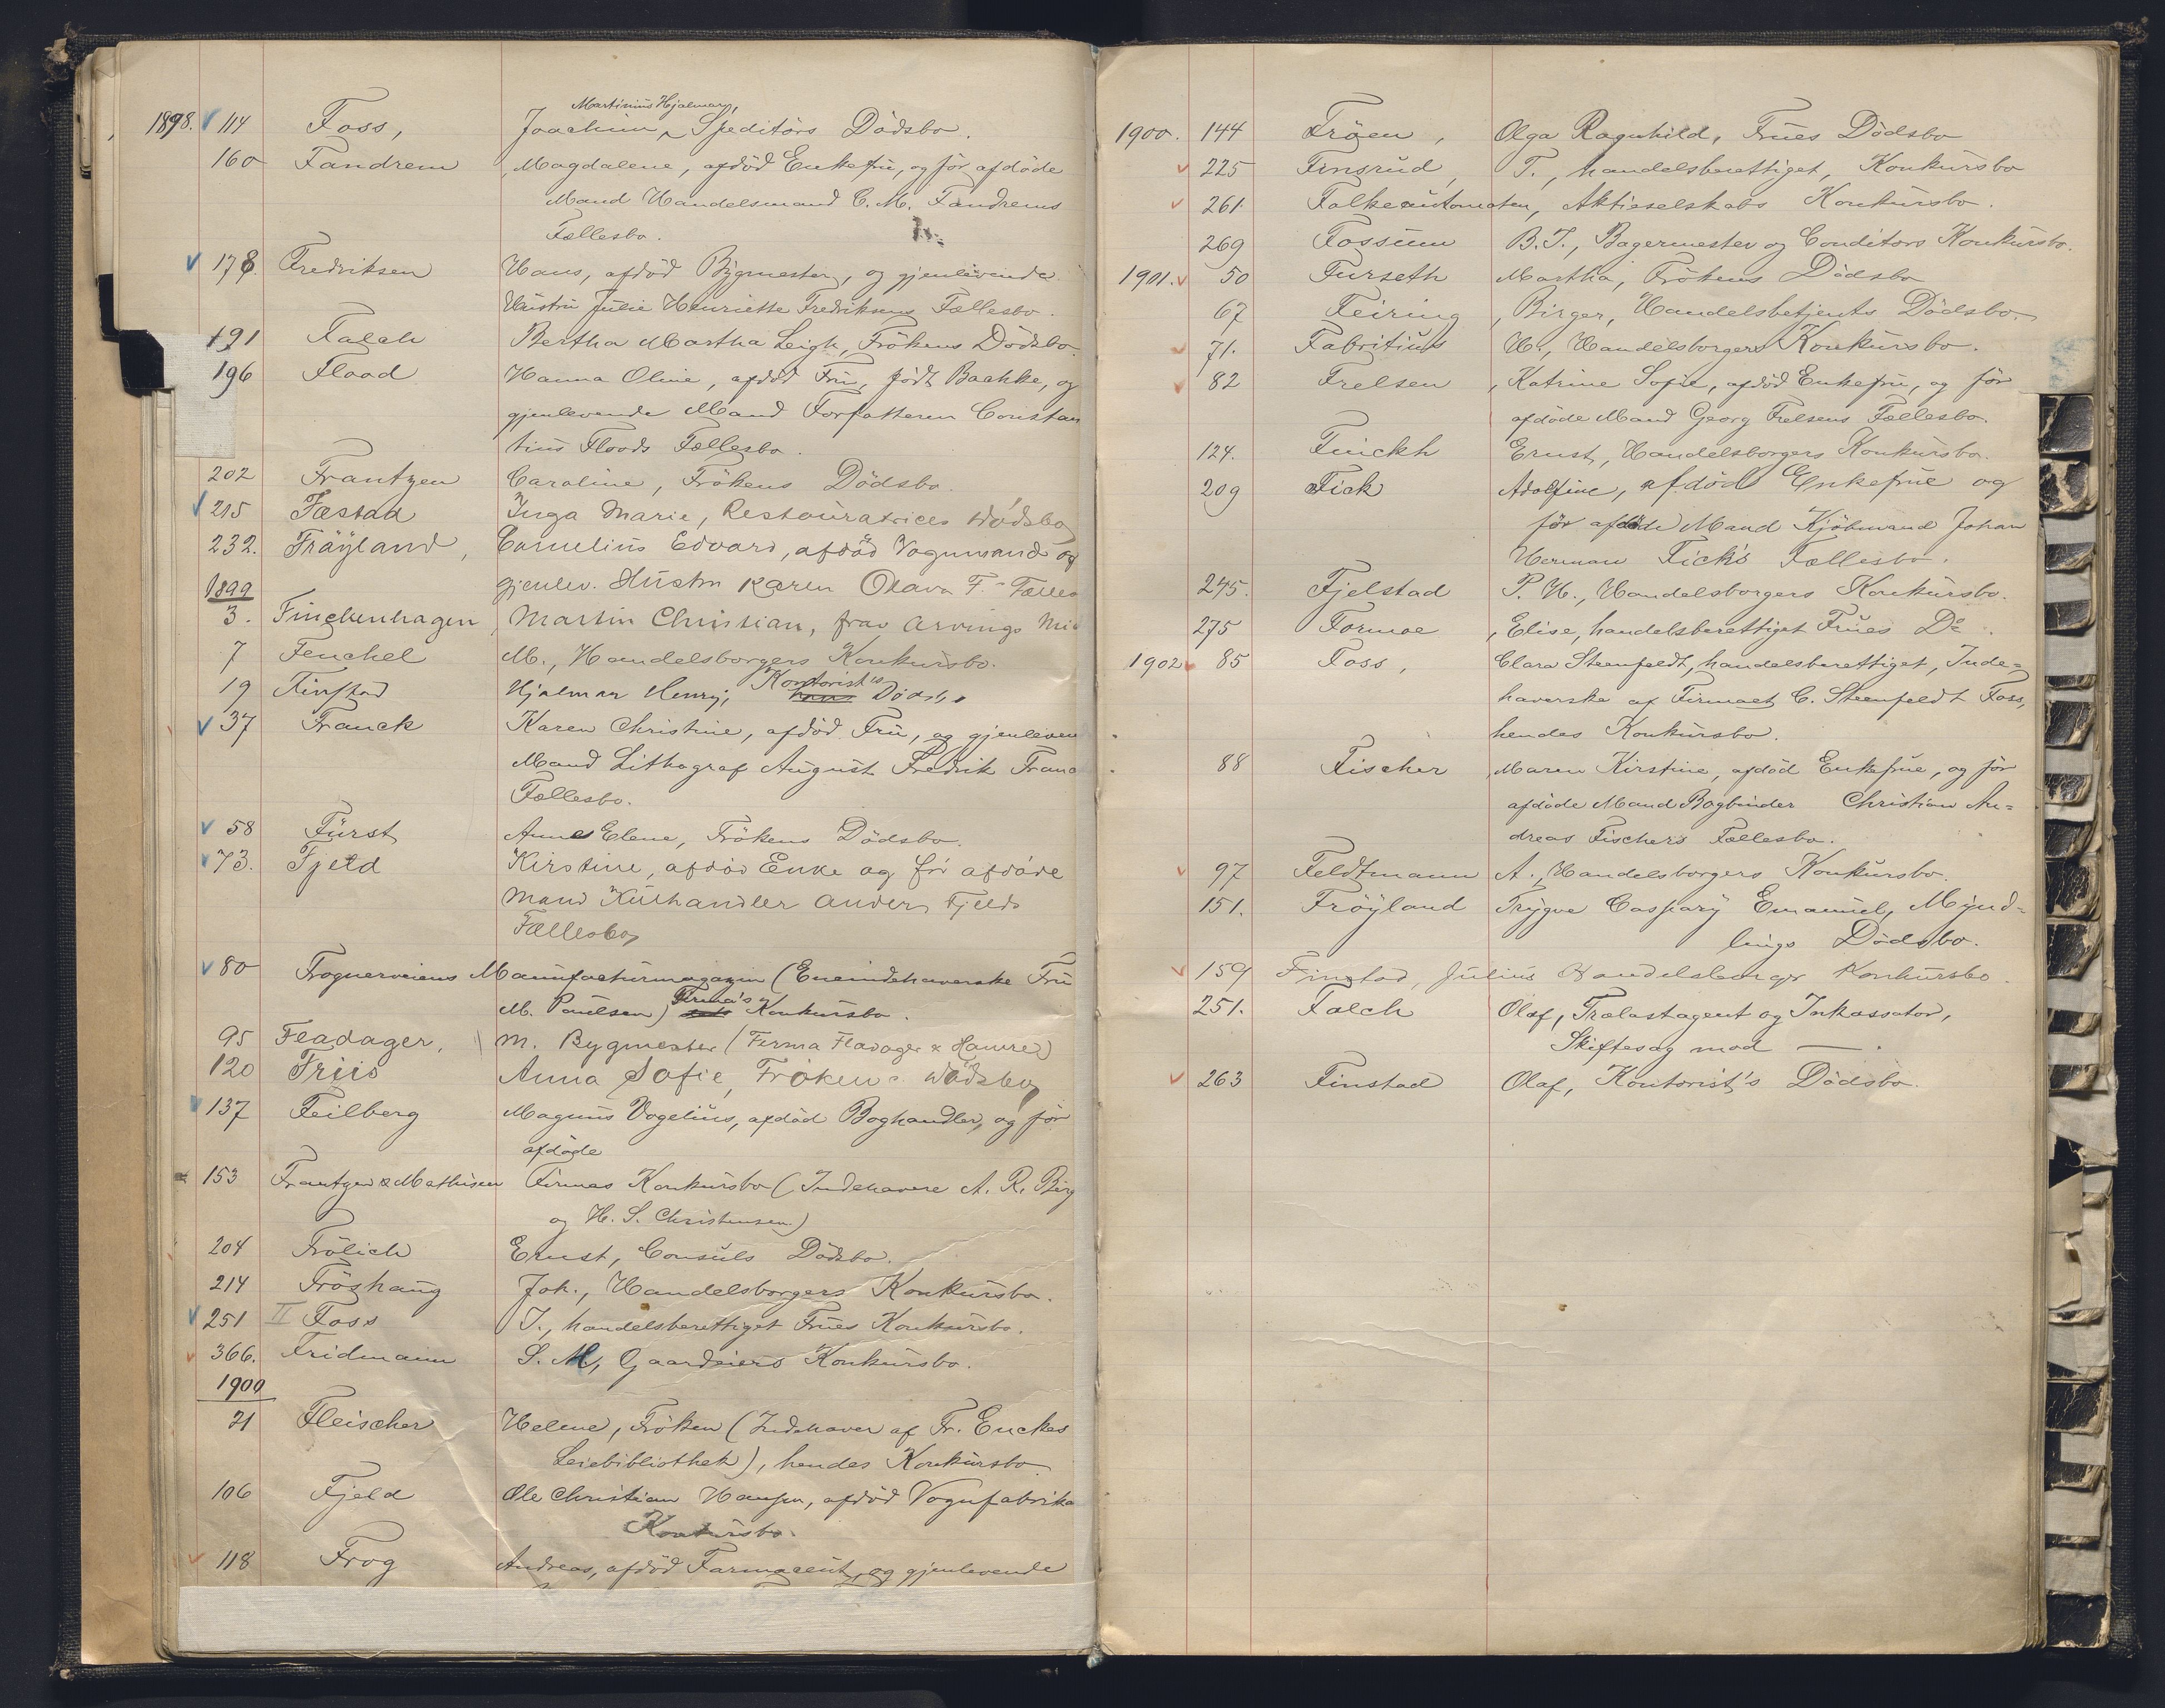 Martinius Hjalmar,
1898. 114 Foss, Joachim, Speditörs Dödsbo.
160 Fandrem, Magdalene, afdöd Enkefru, og för afdöde
Mand Handelsmand C. M. Fandrems
Fællesbo.
178. Fredriksen Hans, afdöd Bygmester, og gjenlevende
Hustru Julie Henriette Fredriksens Fællesbo.
191 Falch Bertha Martha Leigh, Frökens Dödsbo.
196 Flood Hanna Oline, afdöd Fru, födt Bachke, og
gjenlevende Mand Forfatteren Constan
tius Floods Fællesbo.
202 Frantzen Caroline, Frökens Dödsbo.
215 Fæstad Inga Marie, Restauratrices Dödsbo
232. Fröyland, Cornelius Edvard, afdöd Vognmand og
1899 gjenlev. Hustru Karen Olava F.s Fælles
3. Finckenhagen, Martin Christian, frav Arvings Mid
7 Fenchel M., Handelsborgers Konkursbo.
19 Finstad Hjalmar Henry, Kontorist's Dödsbo
37 Franck Karen Christine, afdöd Fru, og gjenleven
Mand Lithograf August Fredrik Franc
Fællesbo.
58 Fürst Anne Elene, Frökens Dödsbo.
73. Fjeld Kirstine, afdöd Enke og för afdöde
Mand Kulhandler Anders Fjelds
Fællesbo
80 Frognerveiens Manufacturmagazin (Eneindehaverske Fru
M. Paulsen) Firma's Konkursbo.
95 Fladager, M. Bygmester (Firma Fladager & Hamre)
120 Friis Anna Sofie, Frökens Dödsbo
137 Feilberg Magnus Vogelius, afdöd Boghandler, og för
afdöde
153 Frantzen & Mathisen Firmas Konkursbo (Indehavere A. R. Berg
og H. S. Christensen)
204 Frölich Ernst, Consuls Dödsbo.
214 Fröshaug Joh., Handelsborgers Konkursbo.
251 II Foss J., handelsberettiget Frues Konkursbo.
366. Fridmann S. M, Gaardeiers Konkursbo.
1900
21 Fleischer Helene, Fröken (Indehaver af Fr. Enckes
Leiebibliothek), hendes Konkursbo.
106 Fjeld Ole Christian Hansen, afdöd Vognfabrika
Konkursbo.
118 Frog Andreas, afdöd Farmaceut, og gjenlevende
1900. 144 Fröen, Olga Ragnhild, Frues Dödsbo
225 Finsrud, T., handelsberettiget, Konkursbo
261. Falkeautomaten, Aktieselskabs Konkursbo.
269 Fossum B. J., Bagermester og Conditors Konkursbo.
1901. 50 Furseth Martha, Frökens Dödsbo
67 Feiring, Birger, Handelsbetjents Dödsbo.
71. Fabritius H., Handelsborgers Konkursbo.
82 Frelsen, Katrine Sofie, afdöd Enkefru, og för
afdöde Mand Georg Frelsens Fællesbo.
124. Finckh Ernst, Handelsborgers Konkursbo.
209 Fick Adolfine, afdöd Enkefrue og
för afdöde Mand Kjöbmand Johan
Herman Fick's Fællesbo.
245. Fjelstad P. H., Handelsborgers Konkursbo.
275 Formoe, Elise, handelsberettiget Frues Do.
1902 85 Foss, Clara Steenfeldt, handelsberettiget, Inde=
haverske af Firmaet C. Steenfeldt Foss,
hendes Konkursbo.
88 Fischer, Maren Kirstine, afdöd Enkefrue, og för
afdöde Mand Bogbinder Christian An=
dreas Fischers Fællesbo.
97 Feldtmann A., Handelsborgers Konkursbo.
151. Fröyland Trygve Caspary Emanuel, Mynd=
lings Dödsbo.
159 Finstad, Julius Handelsborger Konkursbo.
251. Falch Olaf, Trælastagent og Inkassator,
Skiftesag mod —.
263 Finstad Olaf, Kontorist's Dödsbo.